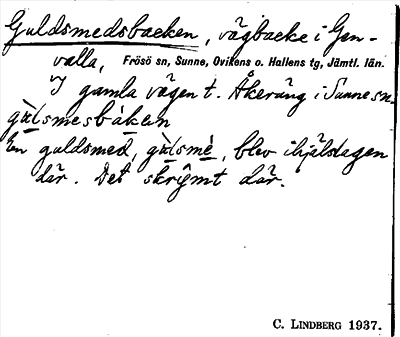 Guldsmedsbacken, vägbacke i Gen-
valla, Frösö sn, Sunne, Ovikens o. Hallens tg, Jämtl. län.
I gamla vägen t. Åkeräng i Sunne sn.
gùlsmesbáken
En guldsmed, gùlsmè, blev ihjälslagen
där. Det skrymt där.
C. LINDBERG 1937.